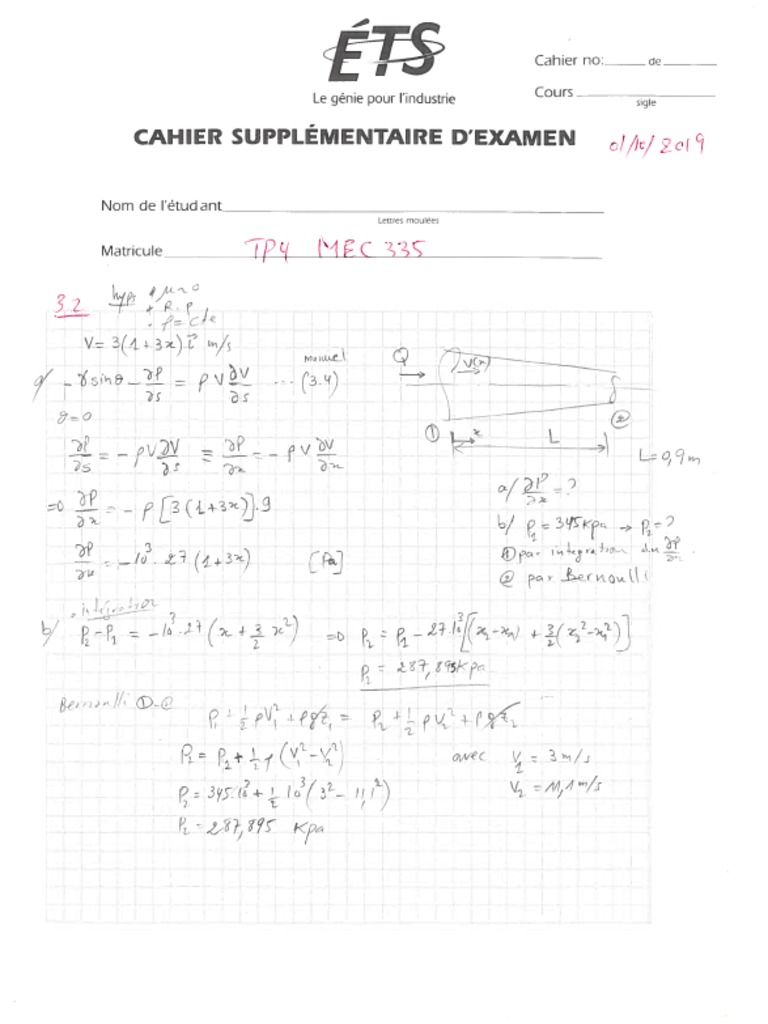 ÉTS
Le génie pour l'industrie
Cahier no:______ de ______
Cours ______
sigle
CAHIER SUPPLÉMENTAIRE D'EXAMEN
01/10/2019
Nom de l'étudiant
Lettres moulées
Matricule TP4 MEC 335
3.2 hyps • μ≈0
• R.P
• ρ = Cte
V = 3(1+3x) i⃗ m/s
a/ -γ sinθ - ∂P/∂s = ρV ∂V/∂s ... (3.4) manuel
θ=0
∂P/∂s = -ρV ∂V/∂s ≡ ∂P/∂x = -ρV ∂V/∂x
=> ∂P/∂x = -ρ[3(1+3x)].9
∂P/∂x = -10³.27(1+3x) [Pa]
Q
V(x)
① ②
x L
L=0,9m
a/ ∂P/∂x = ?
b/ P₁ = 345 kpa → P₂ = ?
① par integration du ∂P/∂x
② par Bernoulli
• intégration
b/ P₂-P₁ = -10³.27(x + 3/2 x²) => P₂ = P₁ - 27.10³[(x₂-x₁) + 3/2(x₂²-x₁²)]
P₂ = 287,895 Kpa
Bernoulli ①-②
P₁ + 1/2 ρV₁² + ρgz₁ = P₂ + 1/2 ρV₂² + ρgz₂
P₂ = P₂ + 1/2 ρ(V₁²-V₂²) avec V₁ = 3 m/s
V₂ = 11,1 m/s
P₂ = 345.10³ + 1/2 10³(3² - 11,1²)
P₂ = 287,895 Kpa